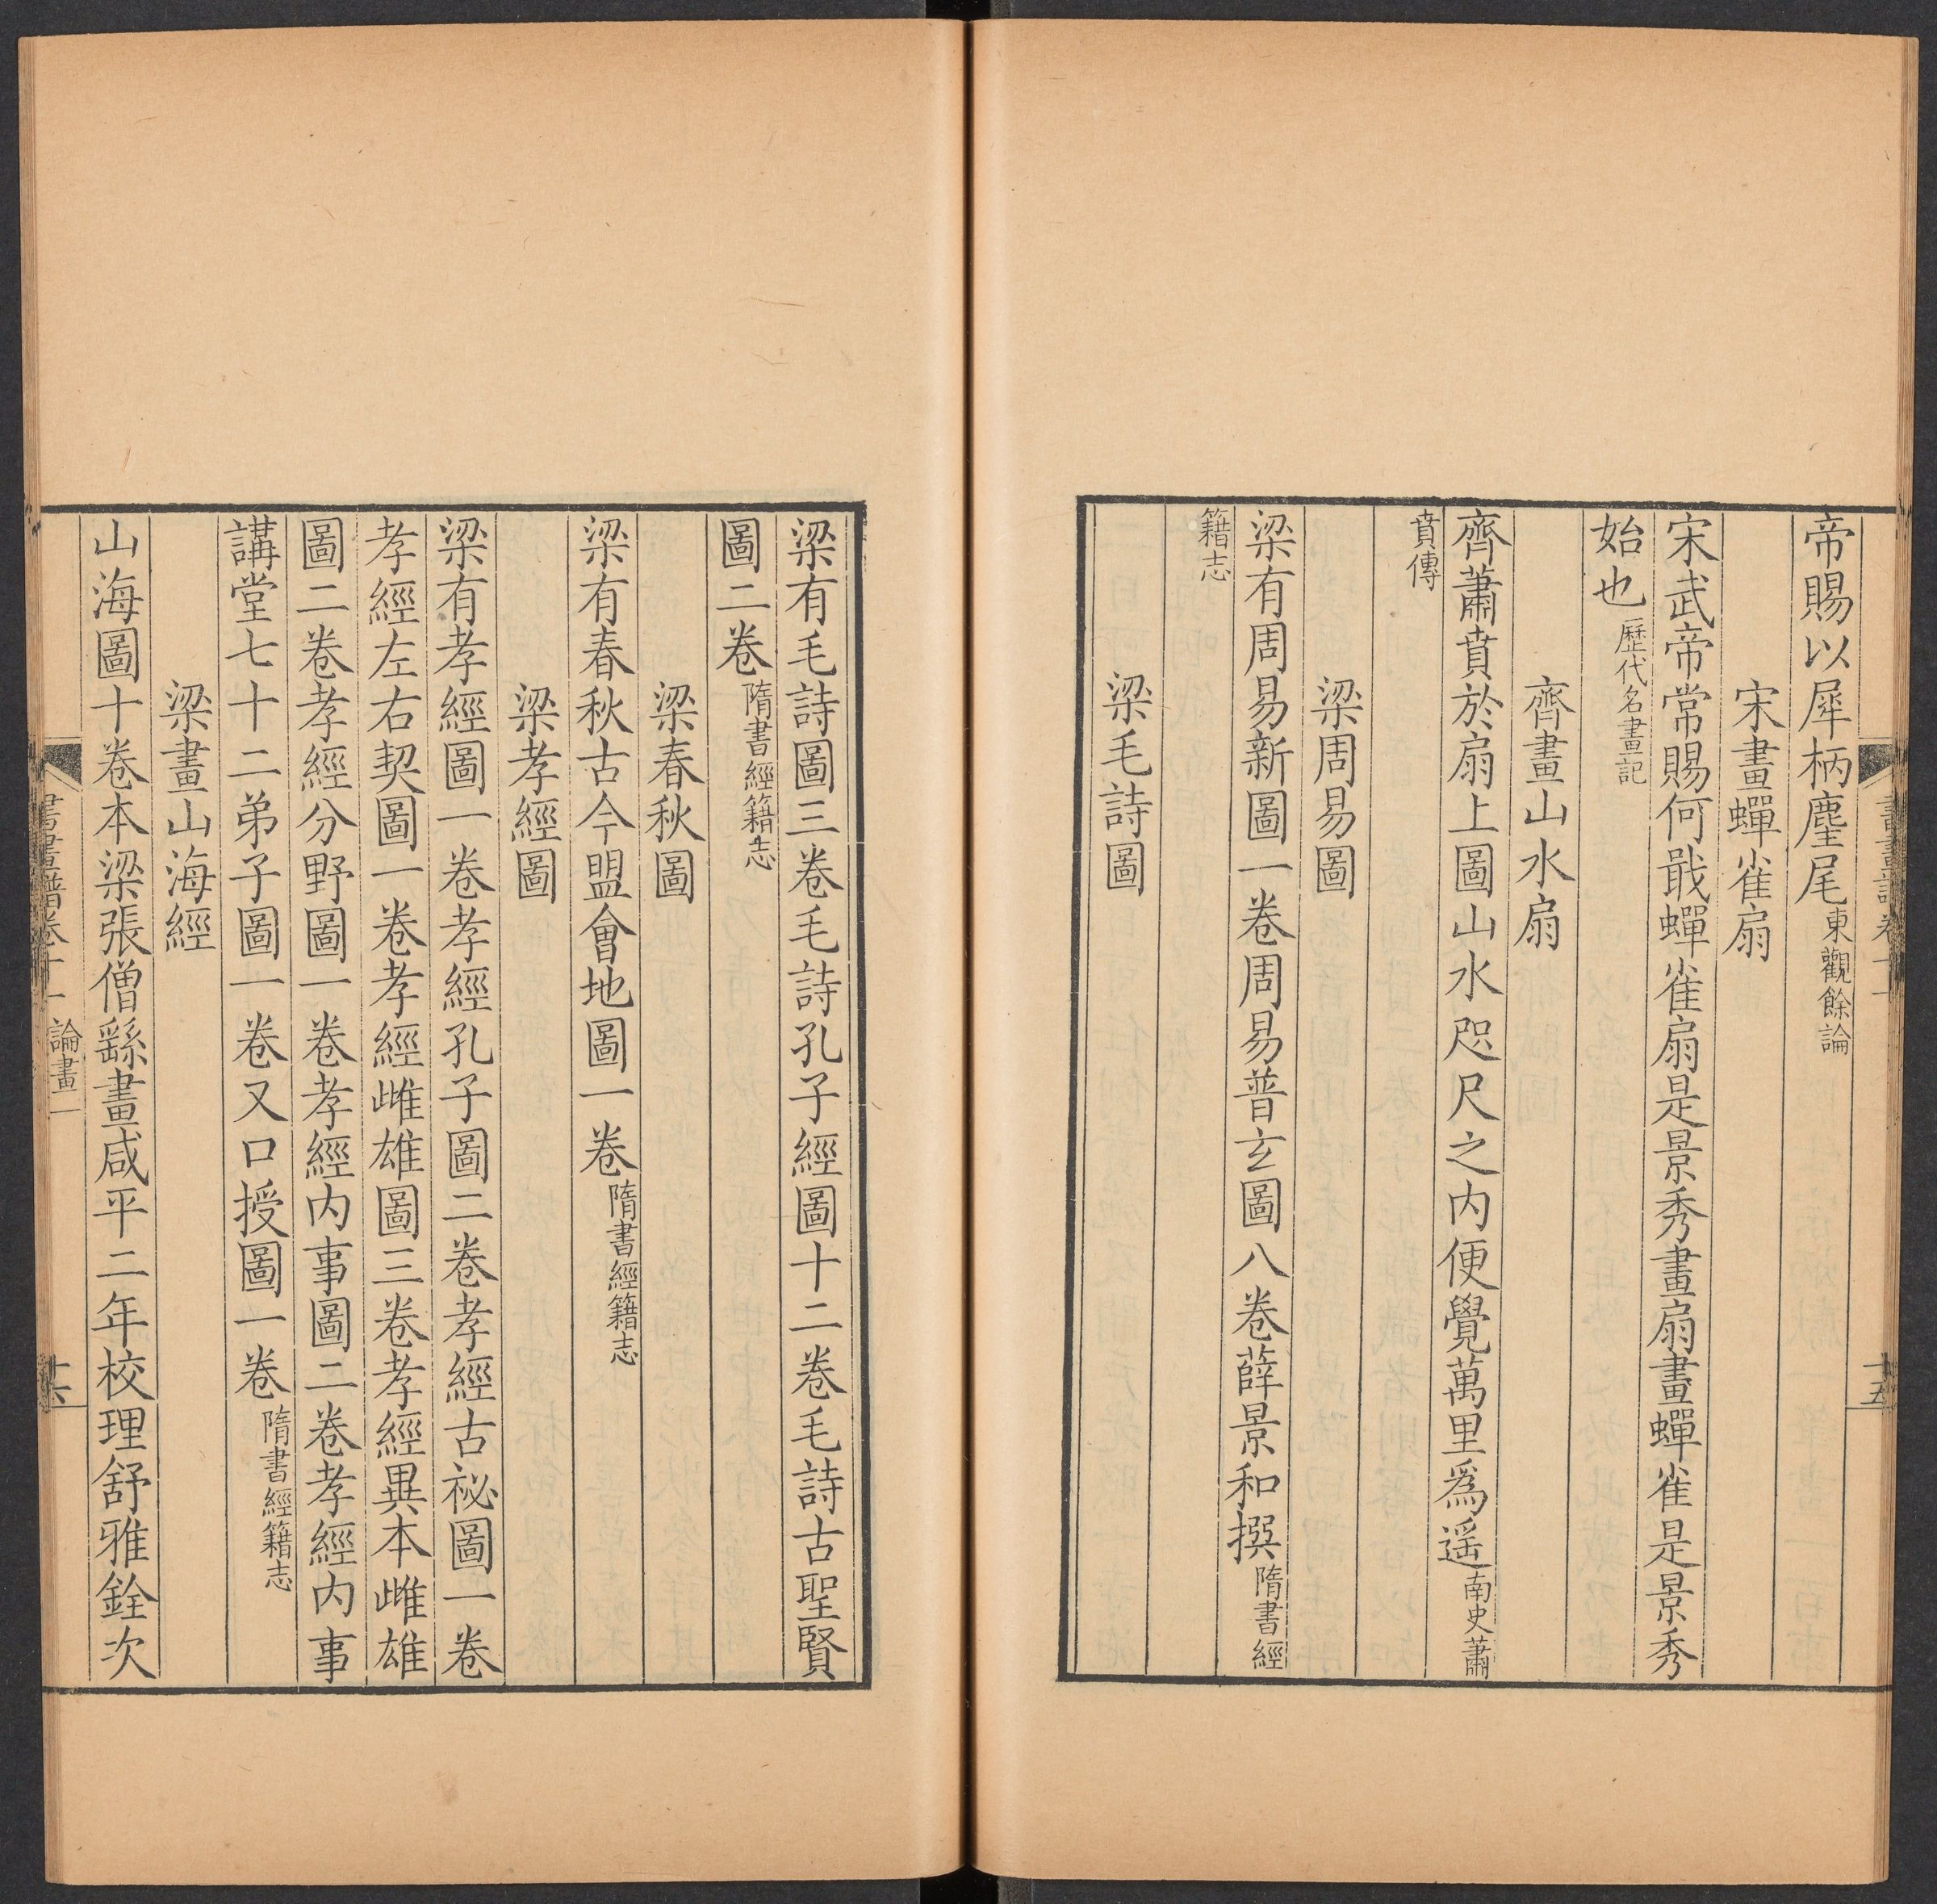 帝賜以犀柄麈尾東觀餘論
宋畫蟬雀扇
宋武帝常賜何戢蟬雀扇是景秀畫扇畫蟬雀是景秀
始也歷代名畫記
齊畫山水扇
齊蕭賁於扇上圖山水咫尺之内便覺萬里爲遥南史蕭
賁傳
梁周易圖
梁有周易新圖一卷周易普玄圖八卷薛景和撰隋書經
籍志
梁毛詩圖
梁有毛詩圖三卷毛詩孔子經圖十二卷毛詩古聖賢
圖二卷隋書經籍志
梁春秋圖
梁有春秋古今盟會地圖一卷隋書經籍志
梁孝經圖
梁有孝經圖一卷孝經孔子圖二卷孝經古祕圖一卷
孝經左右契圖一卷孝經雌雄圖三卷孝經異本雌雄
圖二卷孝經分野圖一卷孝經内事圖二卷孝經内事
講堂七十二弟子圖一卷又口授圖一卷隋書經籍志
梁畫山海經
山海圖十卷本梁張僧繇畫咸平二年校理舒雅銓次
書畫譜卷十一 論畫一
十六